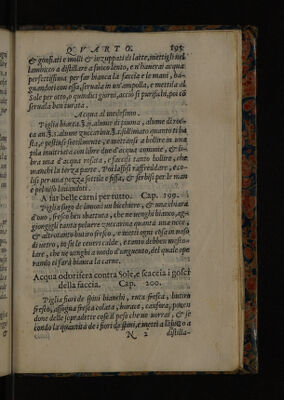 QVARTO. 195
& gonfiati e molli & inzuppati di latte, mettigli nel
lambicco a distillare a fuoco lento, e n'haverai acqua
perfettissima per far bianca la faccia e le mani, ba-
gnandoti con essa, serbala in un'ampolla, e mettila al
Sole per otto, o quindici giorni, acciò si purifichi, poi cō
servala ben turata.
Acqua al medesimo.
Piglia biaca alume di piuma, alume di roc
ca an. alume zuccarina solimato quanto ti ba
sta, e pestinsi sottilmente, e mettansi a bollire in una
pila invitriata con libre due d'acqua comune, & li-
bra una d'acqua rosata, e faccisi tanto bollire, che
manchi la terza parte. Poi lassisi raffreddare, e co-
lisi per una pezza sottile e fissa, & serbisi per le man
e pel viso lavandoti.
A far belle carni per tutto. Cap. 199.
Piglia sugo de limoni un bicchiere, & una chiara
d'ovo, fresco ben sbattuta, che ne venghi bianco, ag-
giongigli tanta polvere zuccarina quanta una noce,
& altrotanto butiro fresco, e metti ogni cosa in vaso
di vetro, in su le ceneri calde, e tanto debben mesto-
lare, che ne venghi a modo d'unguento, del quale ope
rando ti farà bianca la carne.
Acqua odorifera contra Sole, e scaccia i gossi
della faccia. Cap. 200.
Piglia fiori de spini bianchi, ruta fresca, butiro
fresco, assogna fresca colata, borace, canfora, poi
done delle sopradette cose il peso che ne vorrai, & se
condo la quantità de i fiori de spini, e metti a
N 2 distilla-